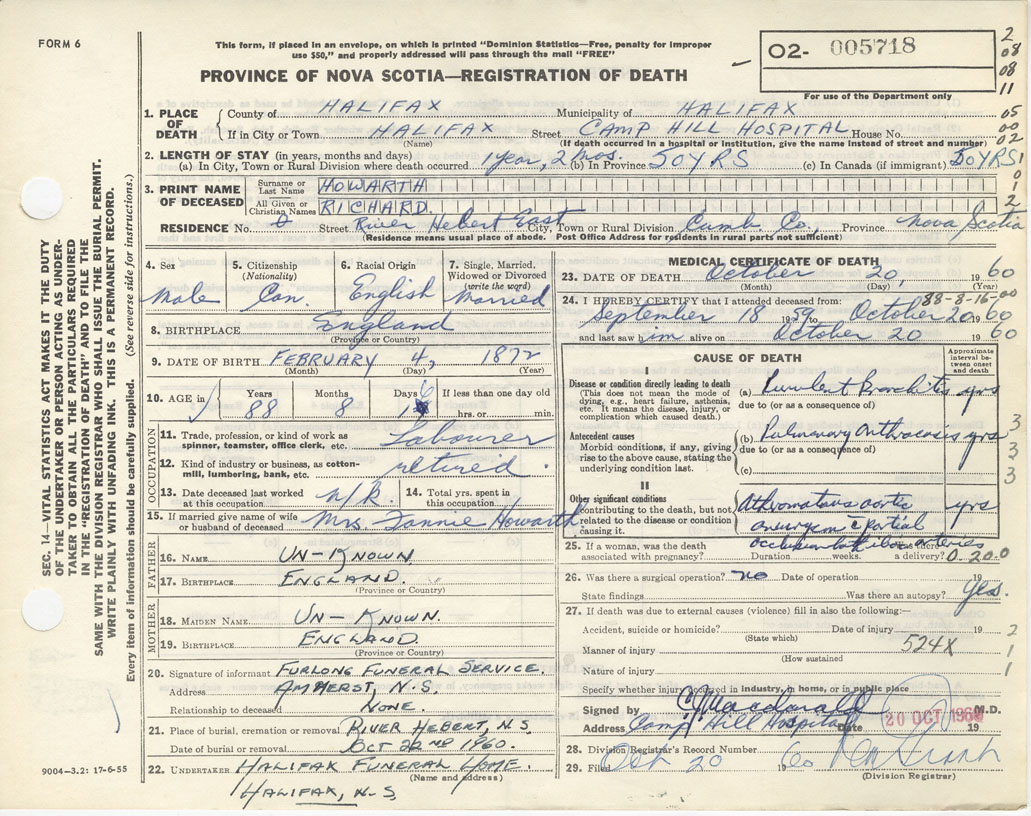 FORM 6
This form, if placed in an envelope, on which is printed "Dominion Statistics—Free, penalty for improper
use $50," and properly addressed will pass through the mail "FREE"
PROVINCE OF NOVA SCOTIA—REGISTRATION OF DEATH
O2- 005718
For use of the Department only
2
08
08
11
05
00
02
1
0
1
2
SEC. 14—VITAL STATISTICS ACT MAKES IT THE DUTY
OF THE UNDERTAKER OR PERSON ACTING AS UNDER-
TAKER TO OBTAIN ALL THE PARTICULARS REQUIRED
IN THE "REGISTRATION OF DEATH" AND TO FILE THE
SAME WITH THE DIVISION REGISTRAR WHO SHALL ISSUE THE BURIAL PERMIT.
WRITE PLAINLY WITH UNFADING INK. THIS IS A PERMANENT RECORD.
Every item of information should be carefully supplied. (See reverse side for instructions.)
1. PLACE OF DEATH County of HALIFAX Municipality of HALIFAX
If in City or Town HALIFAX Street CAMP HILL HOSPITAL House No.
(Name) (If death occurred in a hospital or institution, give the name instead of street and number)
2. LENGTH OF STAY (in years, months and days)
(a) In City, Town or Rural Division where death occurred 1 year, 2 mos. (b) In Province 50 YRS (c) In Canada (if immigrant) 50 YRS
3. PRINT NAME OF DECEASED Surname or Last Name HOWARTH
All Given or Christian Names RICHARD
RESIDENCE No. 0 Street River Hebert East City, Town or Rural Division Cumb. Co., Province Nova Scotia
(Residence means usual place of abode. Post Office Address for residents in rural parts not sufficient)
4. Sex 5. Citizenship (Nationality) 6. Racial Origin 7. Single, Married, Widowed or Divorced (write the word)
Male Can. English Married
8. BIRTHPLACE England
(Province or Country)
9. DATE OF BIRTH FEBRUARY 4, 1872
(Month) (Day) (Year)
10. AGE in Years Months Days If less than one day
88 8 16 hrs. or min.
OCCUPATION
11. Trade, profession, or kind of work as spinner, teamster, office clerk, etc. Labourer
12. Kind of industry or business, as cotton-mill, lumbering, bank, etc. retired.
13. Date deceased last worked at this occupation n/k. 14. Total yrs. spent in this occupation
15. If married give name of wife or husband of deceased Mrs. Fannie Howarth
FATHER
16. NAME UN-KNOWN
17. BIRTHPLACE ENGLAND.
(Province or Country)
MOTHER
18. MAIDEN NAME UN-KNOWN.
19. BIRTHPLACE ENGLAND.
(Province or Country)
20. Signature of informant FURLONG FUNERAL SERVICE.
Address AMHERST, N.S.
Relationship to deceased NONE.
21. Place of burial, cremation or removal RIVER HEBERT, N.S
Date of burial or removal OCT 22ND 1960.
22. UNDERTAKER HALIFAX FUNERAL HOME.
(Name and address)
HALIFAX, N.S
9004-3.2: 17-6-55
MEDICAL CERTIFICATE OF DEATH
23. DATE OF DEATH October 20, 1960
(Month) (Day)
88-8-16-00
24. I HEREBY CERTIFY that I attended deceased from:
September 18 1959 to October 20 1960
and last saw him alive on October 20 1960
CAUSE OF DEATH
Approximate interval between onset and death
I
Disease or condition directly leading to death
(This does not mean the mode of dying, e.g., heart failure, asthenia, etc. It means the disease, injury, or complication which caused death.)
(a) Purulent Bronchitis yrs
due to (or as a consequence of)
Antecedent causes
Morbid conditions, if any, giving rise to the above cause, stating the underlying condition last.
(b) Pulmonary Anthracosis yrs
due to (or as a consequence of)
(c)
3
3
3
II
Other significant conditions
contributing to the death, but not related to the disease or condition causing it.
Atheromatous aortic yrs
aneurysm c partial
occlusion both iliac arteries
25. If a woman, was the death associated with pregnancy? Duration weeks. Was there a delivery? 0.200
26. Was there a surgical operation? no Date of operation 19
State findings Was there an autopsy? Yes.
27. If death was due to external causes (violence) fill in also the following:—
Accident, suicide or homicide? Date of injury 19 2
(State which)
Manner of injury 524X 1
(How sustained
Nature of injury 1
Specify whether injury occurred in industry, in home, or in public place
Signed by C Macdonald M.D.
Address Camp Hill Hospital Date 20 OCT 1960 19
28. Division Registrar's Record Number
29. Filed Oct 20 1960
(Division Registrar)